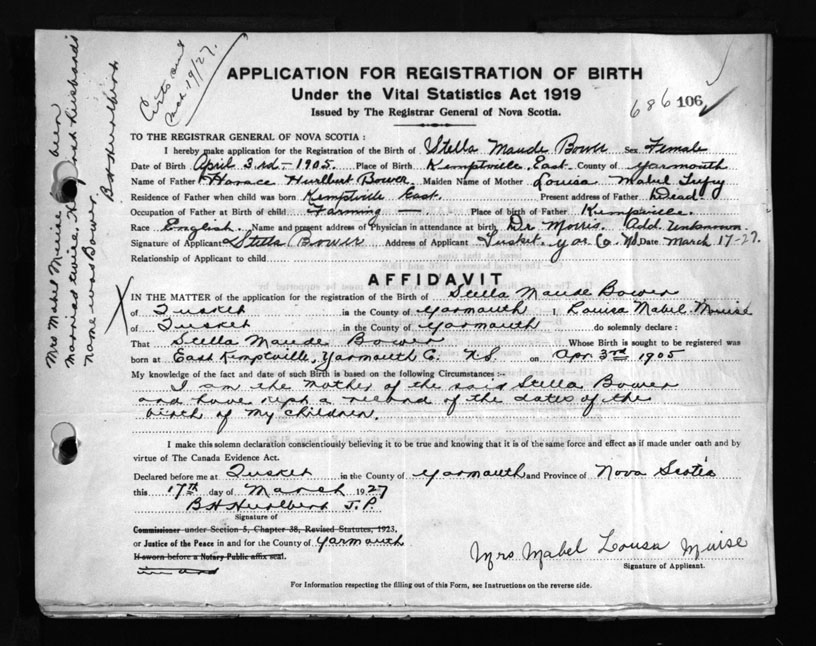 Certs out
Mch 19/27.
Mrs Mabel Muise has been
married twice. Her 2nd husband's
name was Bower.
B H Hurlbert
APPLICATION FOR REGISTRATION OF BIRTH
Under the Vital Statistics Act 1919
Issued by The Registrar General of Nova Scotia.
686 106
TO THE REGISTRAR GENERAL OF NOVA SCOTIA:
I hereby make application for the Registration of the Birth of Stella Maude Bower Sex Female
Date of Birth April 3rd - 1905. Place of Birth Kemptville, East. County of Yarmouth
Name of Father Horace Hurlbert Bower Maiden Name of Mother Louisa Mabel
Residence of Father when child was born Kemptville East. Present address of Father Dead
Occupation of Father at Birth of child Farming — Place of birth of Father Kemptville.
Race English. Name and present address of Physician in attendance at birth Dr Morris. Add. unknown.
Signature of Applicant Stella Bower Address of Applicant Tusket. Yar Co. NS Date March 17-27.
Relationship of Applicant to child
AFFIDAVIT
IN THE MATTER of the application for the registration of the Birth of Stella Maude Bower
of Tusket in the County of Yarmouth I, Louisa Mabel Muise
of Tusket in the County of Yarmouth do solemnly declare:
That Stella Maude Bower Whose Birth is sought to be registered was
born at East Kemptville, Yarmouth C. N.S. on Apr 3rd 1905
My knowledge of the fact and date of such Birth is based on the following Circumstances:-
I am the mother of the said Stella Bower
and have kept a record of the dates of the
birth of my children.
I make this solemn declaration conscientiously believing it to be true and knowing that it is of the same force and effect as if made under oath and by
virtue of The Canada Evidence Act.
Declared before me at Tusket in the County of Yarmouth and Province of Nova Scotia
this 17th day of March 1927
B H Hurlbert J.P.
Signature of
Commissioner under Section 5, Chapter 38, Revised Statutes, 1923,
or Justice of the Peace in and for the County of Yarmouth
If sworn before a Notary Public affix seal.
Mrs Mabel Lousa Muise
Signature of Applicant.
For Information respecting the filling out of this Form, see Instructions on the reverse side.